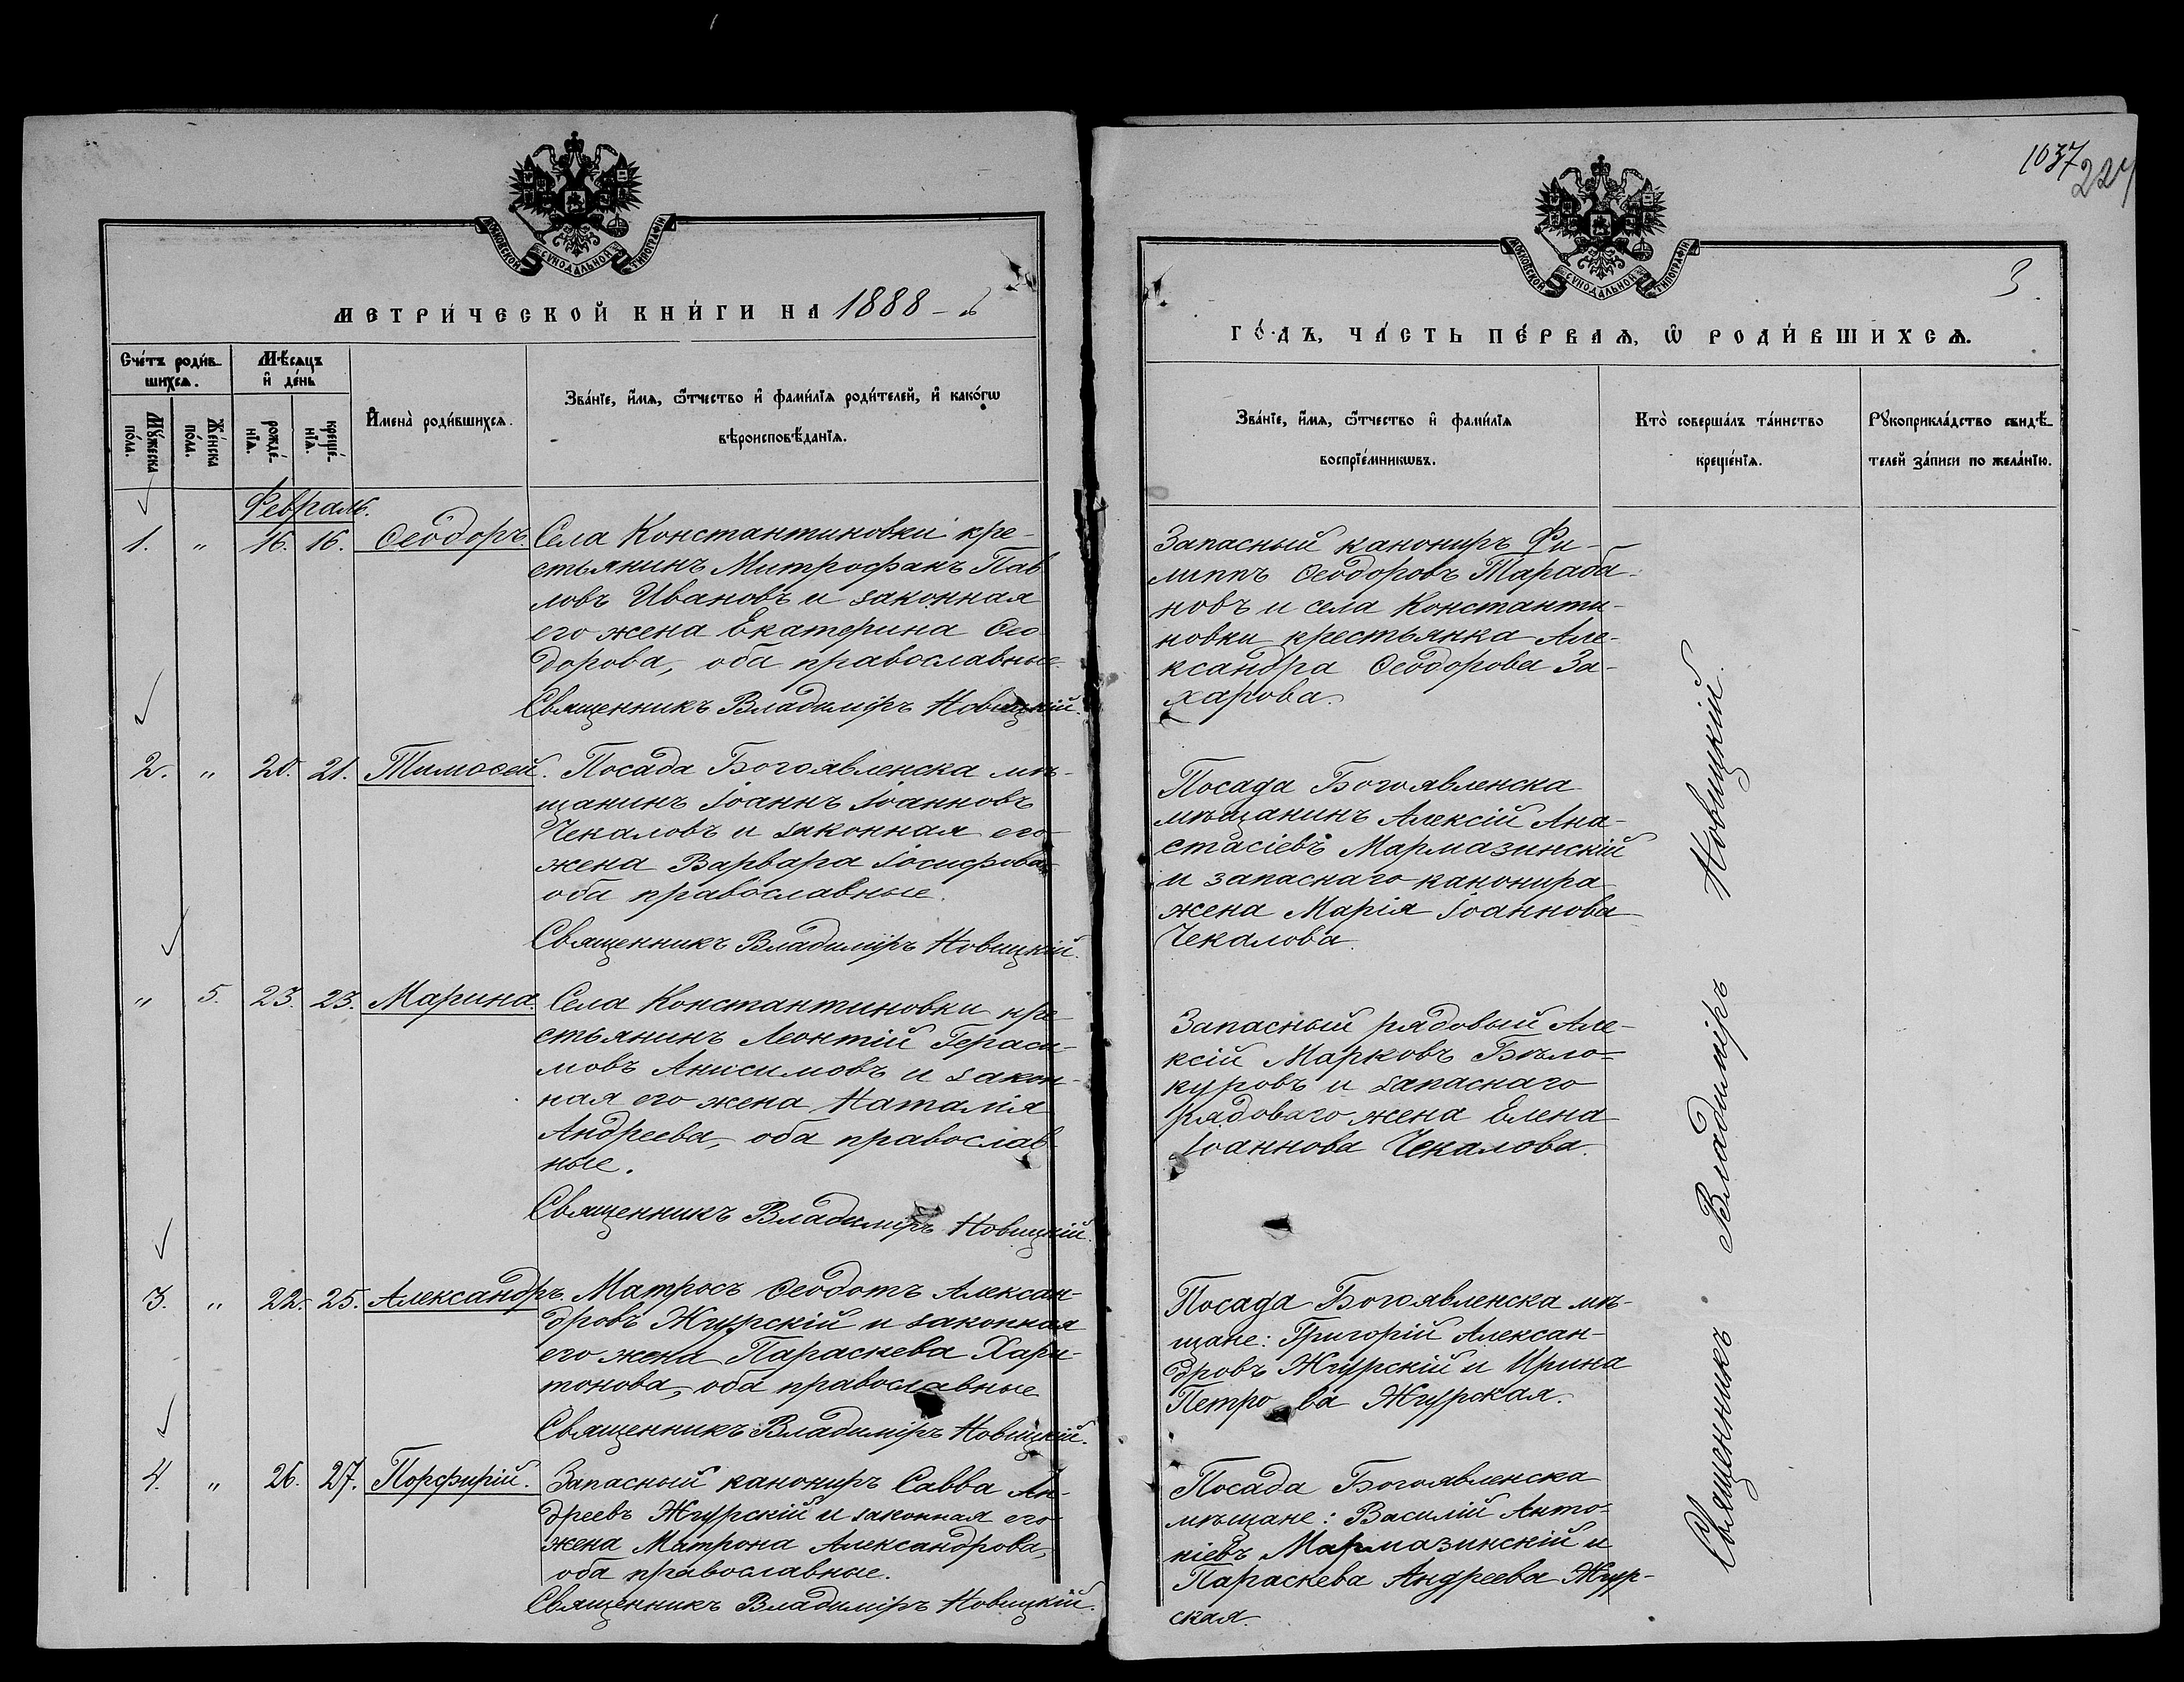 1037
227
МОСКОВСКОЙ СѴНОДАЛЬНОЙ ТИПОГРАФІИ
МЕТРИ́ЧЕСКОЙ КНИ́ГИ НА 1888-й
Сче́тъ роди́в-
шихсѧ.
Мѣ́сѧцъ
и҆ де́нь
Мꙋ́жеска
по́ла.
Же́нска
по́ла.
рожде́-
нїѧ.
креще́-
нїѧ.
И҆мена̀ роди́вшихсѧ.
Зва́нїе, и҆́мѧ, ѻ҆́тчество и҆ фами́лїѧ роди́телей, и҆ како́гѡ
вѣроисповѣ́данїѧ.
Февраль.
1. " 16. 16. Ѳеодоръ.
Села Константиновки кре-
стьянинъ Митрофанъ Пав
ловъ Ивановъ и законная
его жена Екатерина Ѳео
дорова, оба православные.
Священникъ Владиміръ Новицкій.
2. " 20. 21. Тимоѳей.
Посада Богоявленска мѣ-
щанинъ Іоаннъ Іоанновъ
Чекаловъ и законная его
жена Варвара Іосифова
оба православные.
Священникъ Владиміръ Новицкій.
" 5. 23. 23. Марина.
Села Константиновки кре
стьянинъ Леонтій Гераси-
мовъ Анисимовъ и закон-
ная его жена Наталія
Андреева, оба православ
ные.
Священникъ Владиміръ Новицкій.
3. " 22. 25. Александръ.
Матросъ Ѳеодотъ Алексан-
дровъ Жгурскій и законная
его жена Параскева Хари-
тонова, оба православные
Священникъ Владиміръ Новицкій.
4. " 26. 27. Порфирій.
Запасный канониръ Савва Ан-
дреевъ Жгурскій и законная его
жена Матрона Александрова,
оба православные.
Священникъ Владиміръ Новицкій.
МОСКОВСКОЙ СѴНОДАЛЬНОЙ ТИПОГРАФІИ
3.
ГО́ДЪ, ЧА́СТЬ ПЕ́РВАѦ, Ѡ҆ РОДИ́ВШИХСѦ.
Зва́нїе, и҆́мѧ, ѻ҆́тчество и҆ фами́лїѧ
воспрїе́мникѡвъ.
Кто̀ соверша́лъ та́инство
креще́нїѧ.
Рꙋкоприкла́дство свидѣ́-
телей за́писи по жела́нїю.
Запасный канониръ Фи-
липпъ Ѳеодоровъ Тараба-
новъ и села Константи-
новки крестьянка Але-
ксандра Ѳеодорова За-
харова.
Посада Богоявленска
мѣщанинъ Алексій Ана-
стасіевъ Мармазинскій
и запаснаго канонира
жена Марія Іоаннова
Чекалова.
Запасный рядовый Але-
ксій Марковъ Бѣло-
куровъ и запаснаго
рядоваго жена Елена
Іоаннова Чекалова.
Посада Богоявленска мѣ-
щане: Григорій Алексан-
дровъ Жгурскій и Ирина
Петрова Жгурская.
Посада Богоявленска
мѣщане: Василій Анто-
ніевъ Мармазинскій и
Параскева Андреева Жгур-
ская.
Священникъ Владиміръ Новицкій.